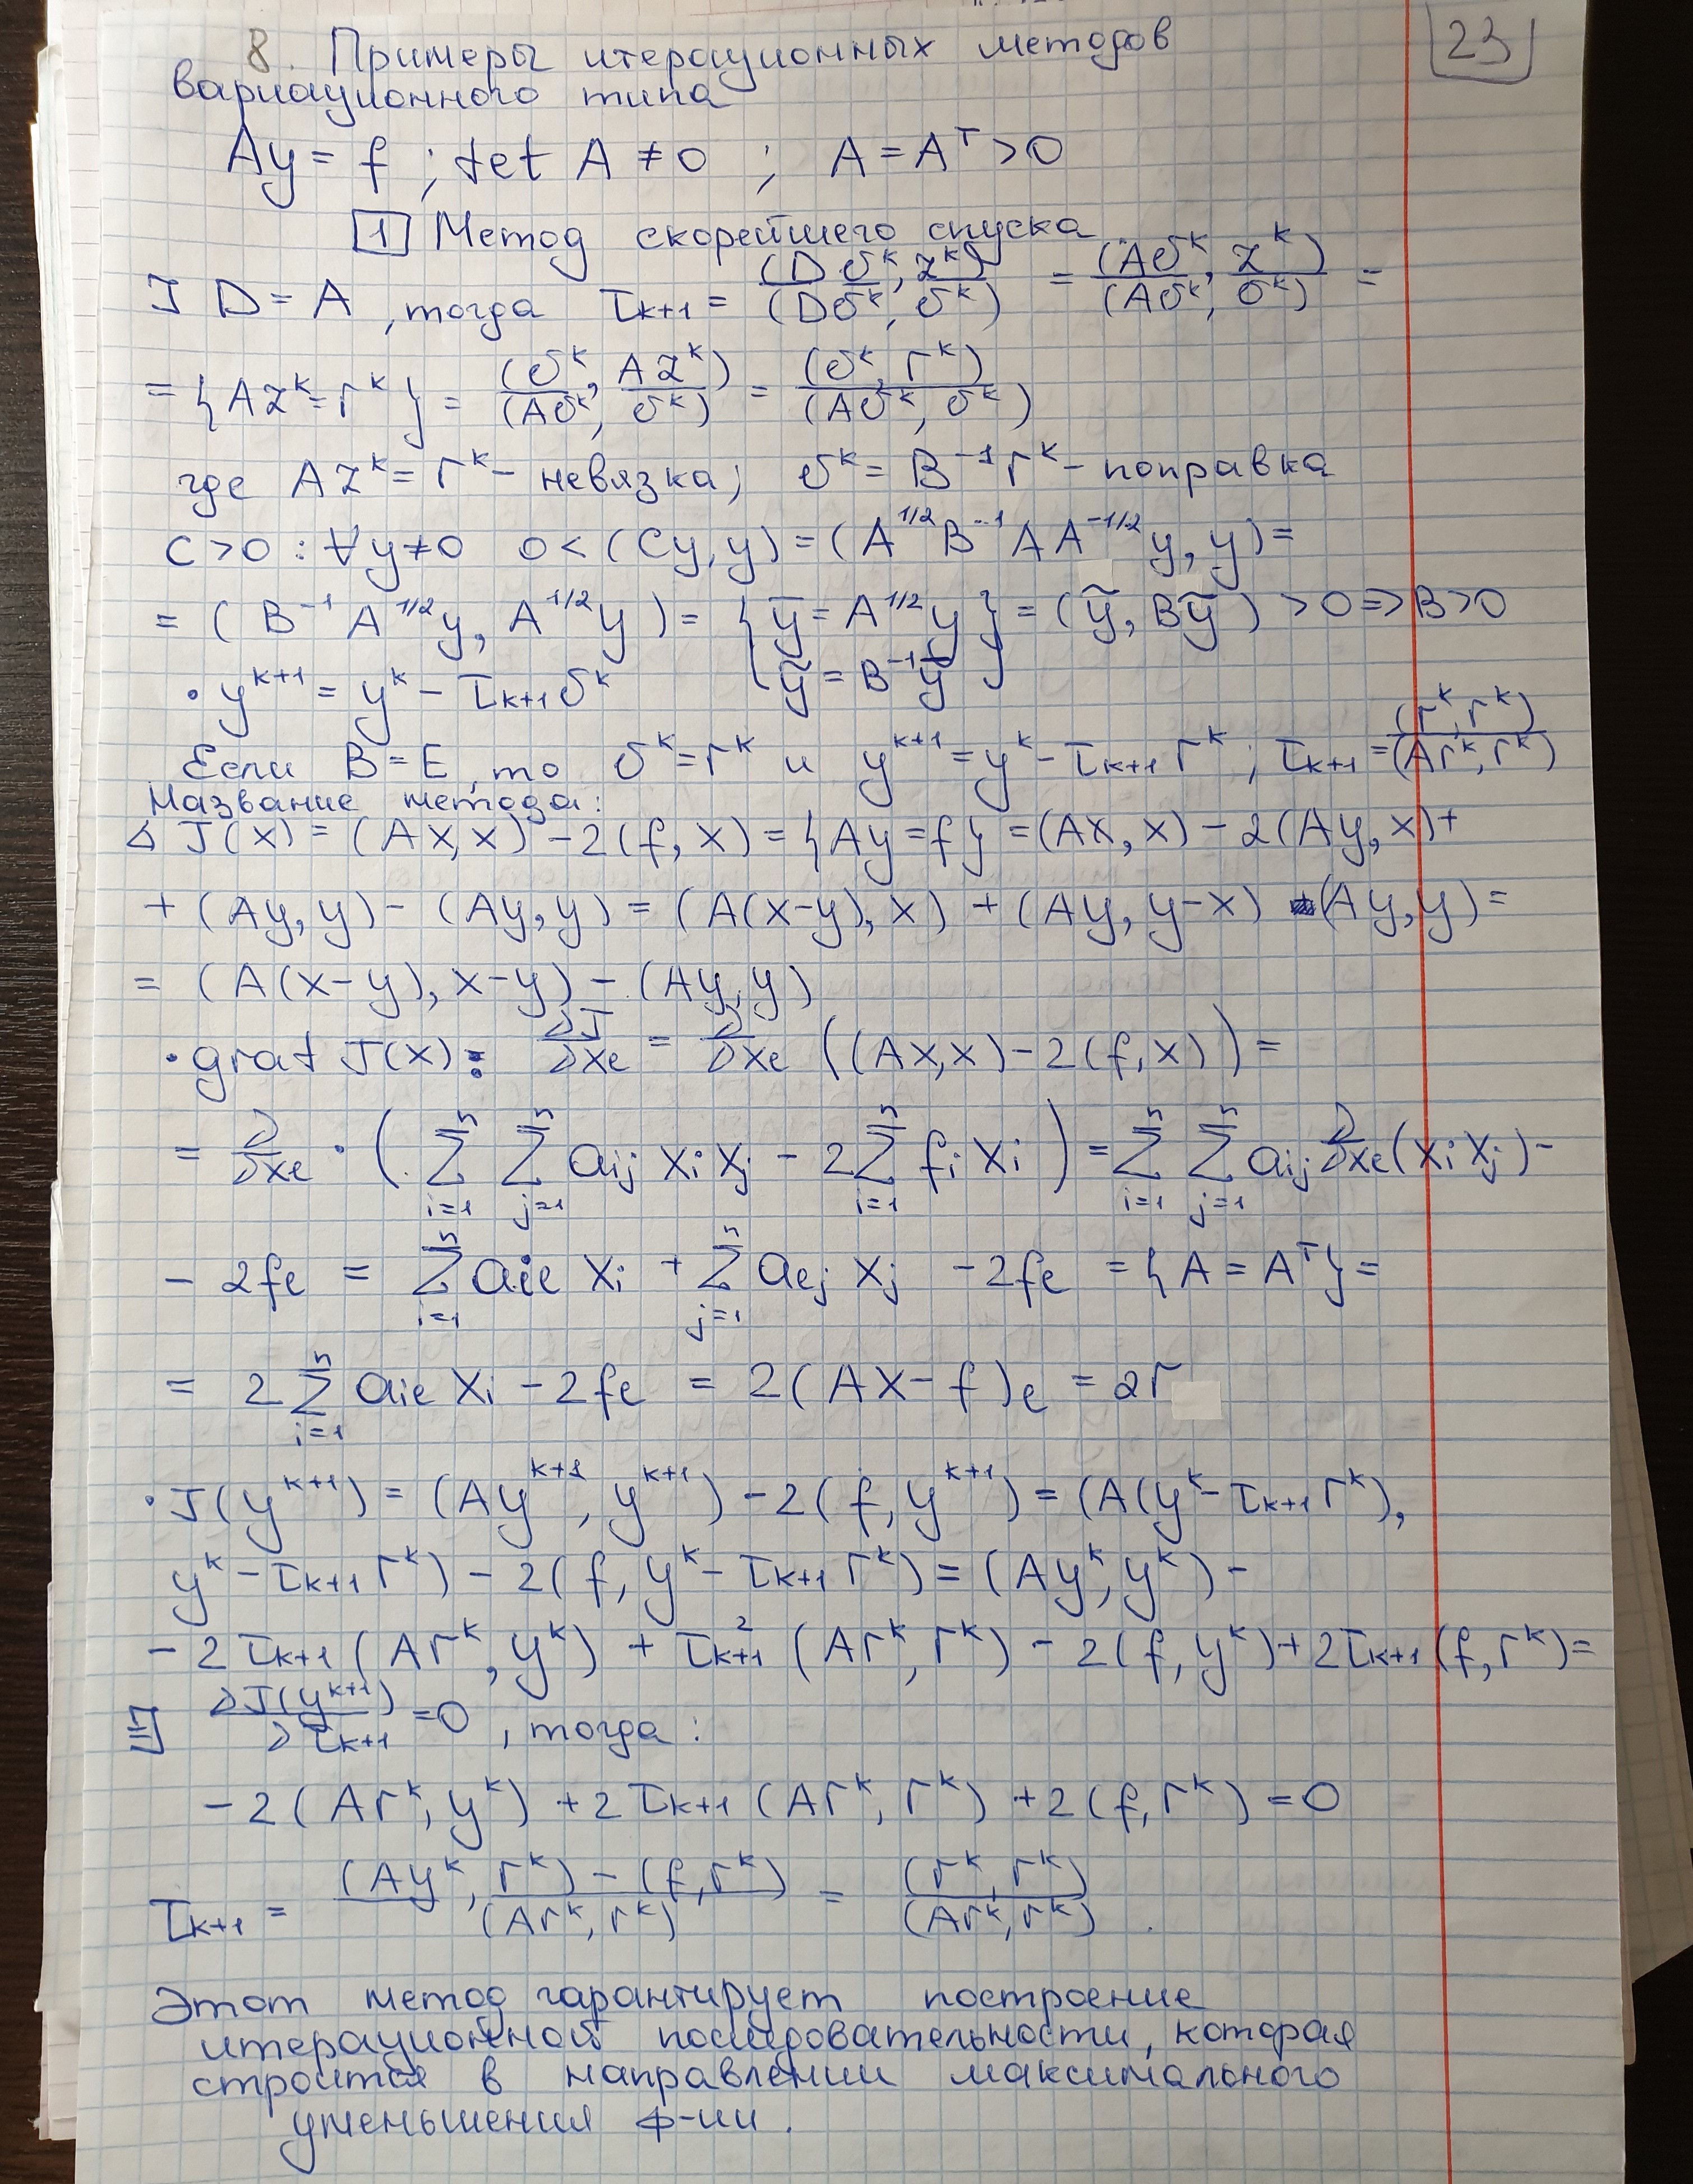 23
8. Примеры итерационных методов
вариационного типа
Ay = f ; det A ≠ 0 ; A = Aᵀ > 0
1 Метод скорейшего спуска
] D = A, тогда τₖ₊₁ = (Dσᵏ, zᵏ)/(Dσᵏ, σᵏ) = (Aσᵏ, zᵏ)/(Aσᵏ, σᵏ) =
= {Azᵏ = rᵏ} = (σᵏ, Azᵏ)/(Aσᵏ, σᵏ) = (σᵏ, rᵏ)/(Aσᵏ, σᵏ)
где Azᵏ = rᵏ – невязка; σᵏ = B⁻¹rᵏ – поправка
C > 0 : ∀y ≠ 0 0 < (Cy, y) = (A^{1/2}B⁻¹AA^{-1/2}y, y) =
= (B⁻¹A^{1/2}y, A^{1/2}y) = {ȳ = A^{1/2}y; ỹ = B⁻¹ȳ} = (ỹ, Bỹ) > 0 => B > 0
· yᵏ⁺¹ = yᵏ – τₖ₊₁σᵏ
Если B = E, то σᵏ = rᵏ и yᵏ⁺¹ = yᵏ – τₖ₊₁rᵏ ; τₖ₊₁ = (rᵏ, rᵏ)/(Arᵏ, rᵏ)
Название метода:
△ J(x) = (Ax, x) – 2(f, x) = {Ay = f} = (Ax, x) – 2(Ay, x) +
+ (Ay, y) – (Ay, y) = (A(x–y), x) + (Ay, y–x) – (Ay, y) =
= (A(x–y), x–y) – (Ay, y)
· grad J(x): ∂J/∂xₑ = ∂/∂xₑ ((Ax, x) – 2(f, x)) =
= ∂/∂xₑ · (∑ᵢ₌₁ⁿ ∑ⱼ₌₁ⁿ aᵢⱼ xᵢ xⱼ – 2∑ᵢ₌₁ⁿ fᵢ xᵢ) = ∑ᵢ₌₁ⁿ ∑ⱼ₌₁ⁿ aᵢⱼ ∂/∂xₑ (xᵢ xⱼ) –
– 2fₑ = ∑ᵢ₌₁ⁿ aᵢₑ xᵢ + ∑ⱼ₌₁ⁿ aₑⱼ xⱼ – 2fₑ = {A = Aᵀ} =
= 2∑ᵢ₌₁ⁿ aᵢₑ xᵢ – 2fₑ = 2(Ax – f)ₑ = 2r
· J(yᵏ⁺¹) = (Ayᵏ⁺¹, yᵏ⁺¹) – 2(f, yᵏ⁺¹) = (A(yᵏ – τₖ₊₁rᵏ),
yᵏ – τₖ₊₁rᵏ) – 2(f, yᵏ – τₖ₊₁rᵏ) = (Ayᵏ, yᵏ) –
– 2τₖ₊₁(Arᵏ, yᵏ) + τ²ₖ₊₁(Arᵏ, rᵏ) – 2(f, yᵏ) + 2τₖ₊₁(f, rᵏ) =
] ∂J(yᵏ⁺¹)/∂τₖ₊₁ = 0, тогда:
– 2(Arᵏ, yᵏ) + 2τₖ₊₁(Arᵏ, rᵏ) + 2(f, rᵏ) = 0
τₖ₊₁ = ((Ayᵏ, rᵏ) – (f, rᵏ))/(Arᵏ, rᵏ) = (rᵏ, rᵏ)/(Arᵏ, rᵏ).
Этот метод гарантирует построение
итерационной последовательности, которая
строится в направлении максимального
уменьшения ф-ии.